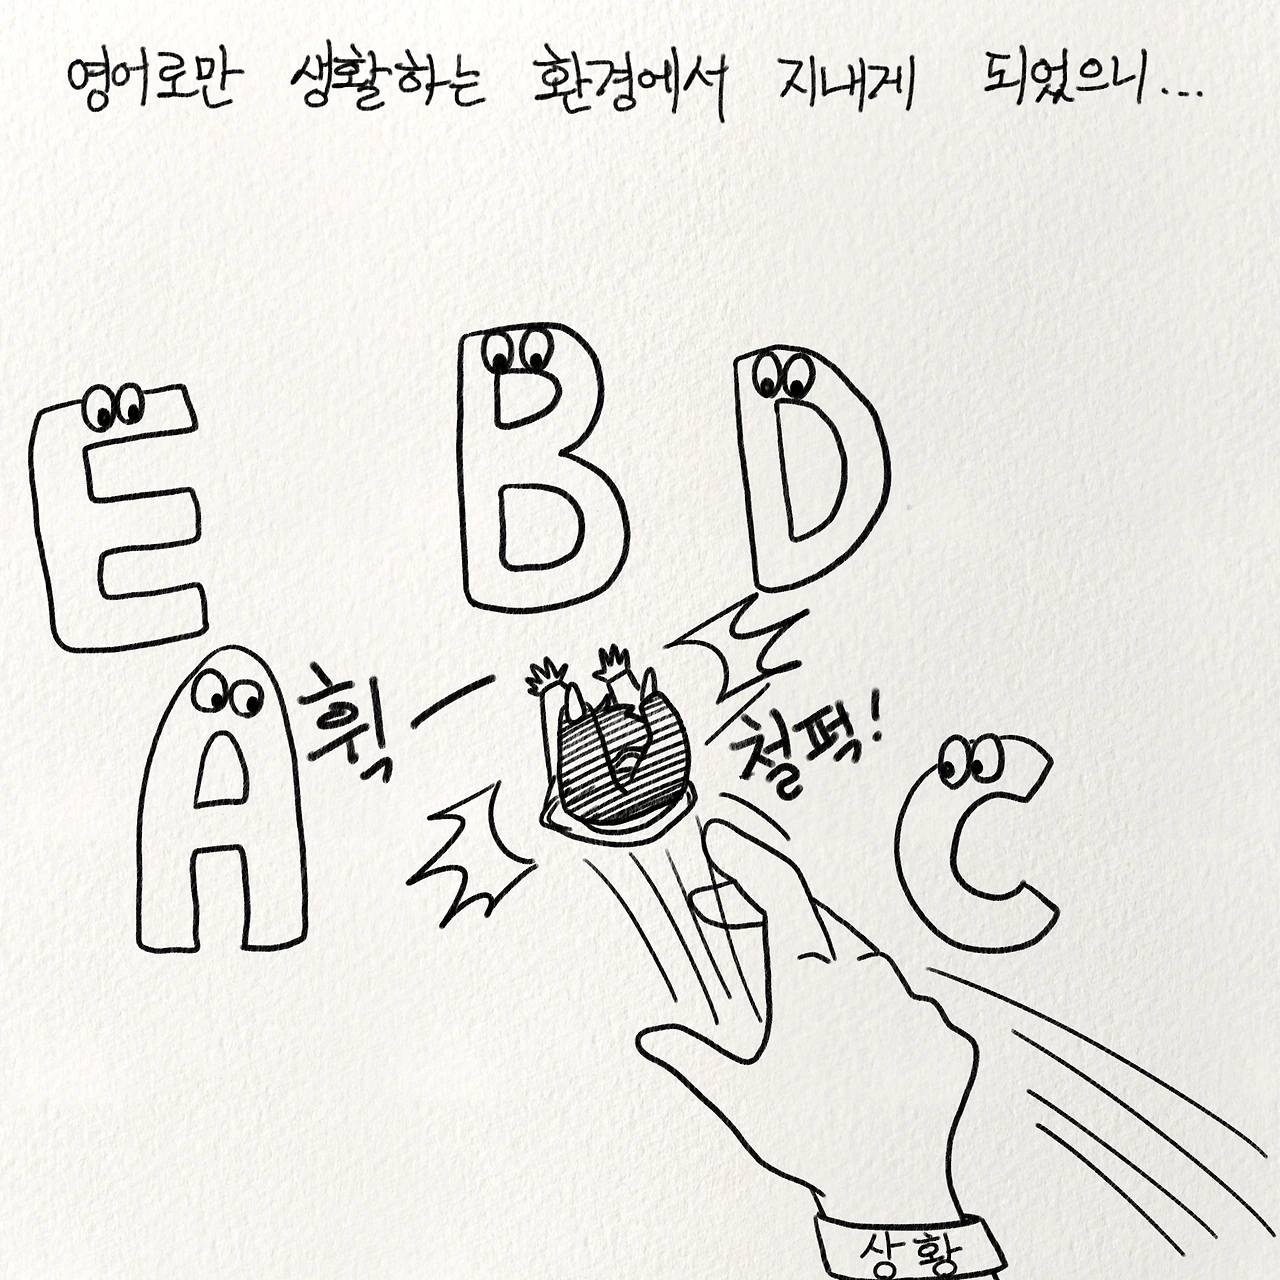 영어로만 생활하는 환경에서 지내게 되었으니...
E
B
D
A
휙
철퍽!
C
상황